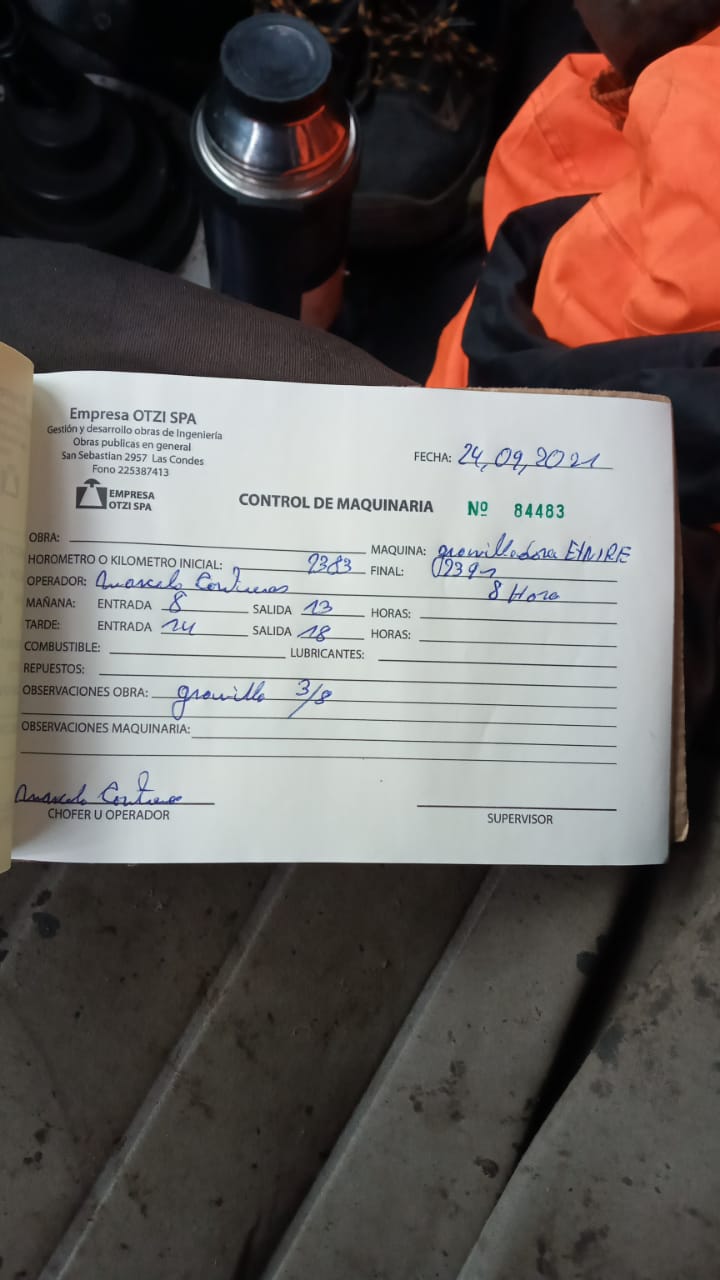 Empresa OTZI SPA
Gestión y desarrollo obras de Ingeniería
Obras publicas en general
San Sebastian 2957 Las Condes
Fono 225387413
EMPRESA
OTZI SPA
FECHA: 24,09,2021
CONTROL DE MAQUINARIA Nº 84483
OBRA: MAQUINA: gravilladora
HOROMETRO O KILOMETRO INICIAL: 2383 FINAL: 2391
OPERADOR: Marcelo Contreras 8 Hora
MAÑANA: ENTRADA 8 SALIDA 13 HORAS:
TARDE: ENTRADA 14 SALIDA 18 HORAS:
COMBUSTIBLE: LUBRICANTES:
REPUESTOS:
OBSERVACIONES OBRA: gravilla 3/8
OBSERVACIONES MAQUINARIA:
Marcelo Contreras
CHOFER U OPERADOR
SUPERVISOR